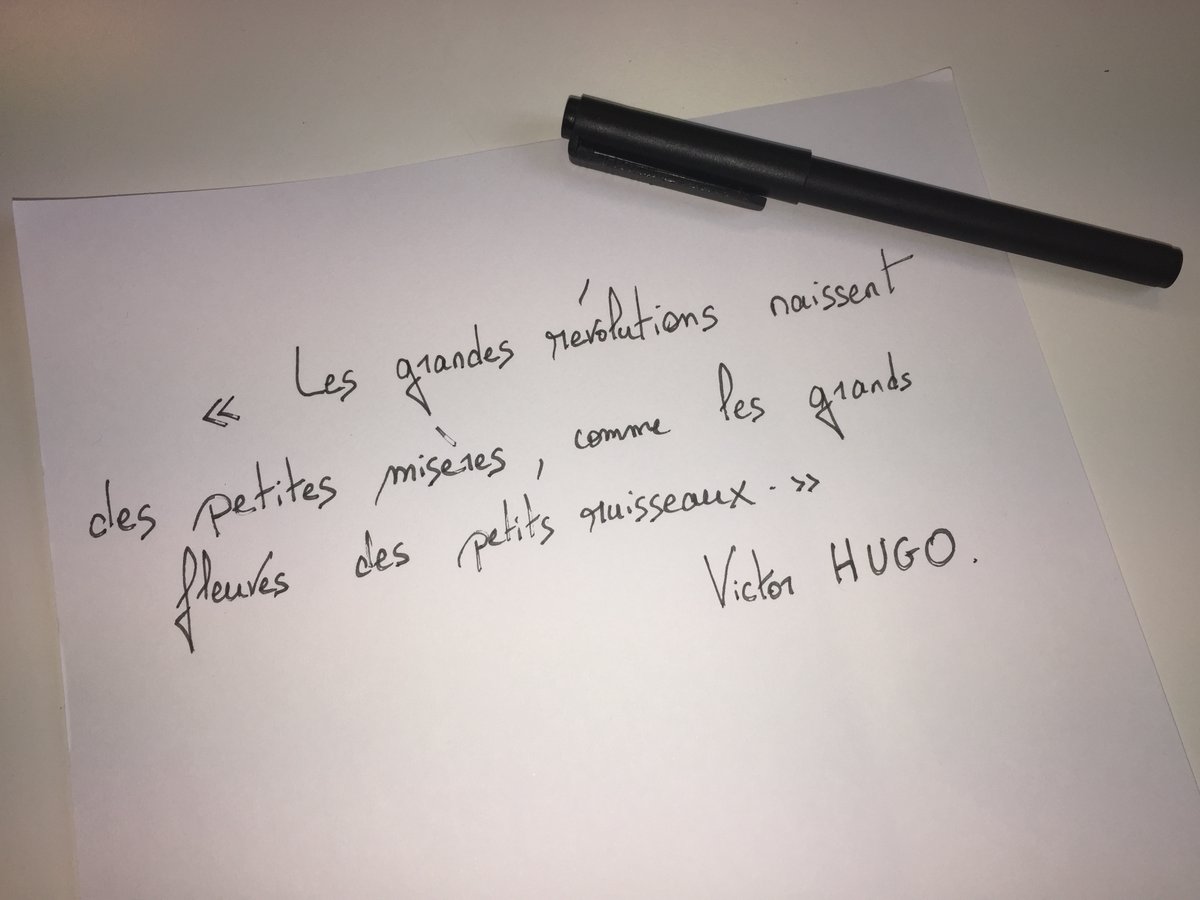 « Les grandes révolutions naissent
des petites misères, comme les grands
fleuves des petits ruisseaux. »
Victor HUGO.